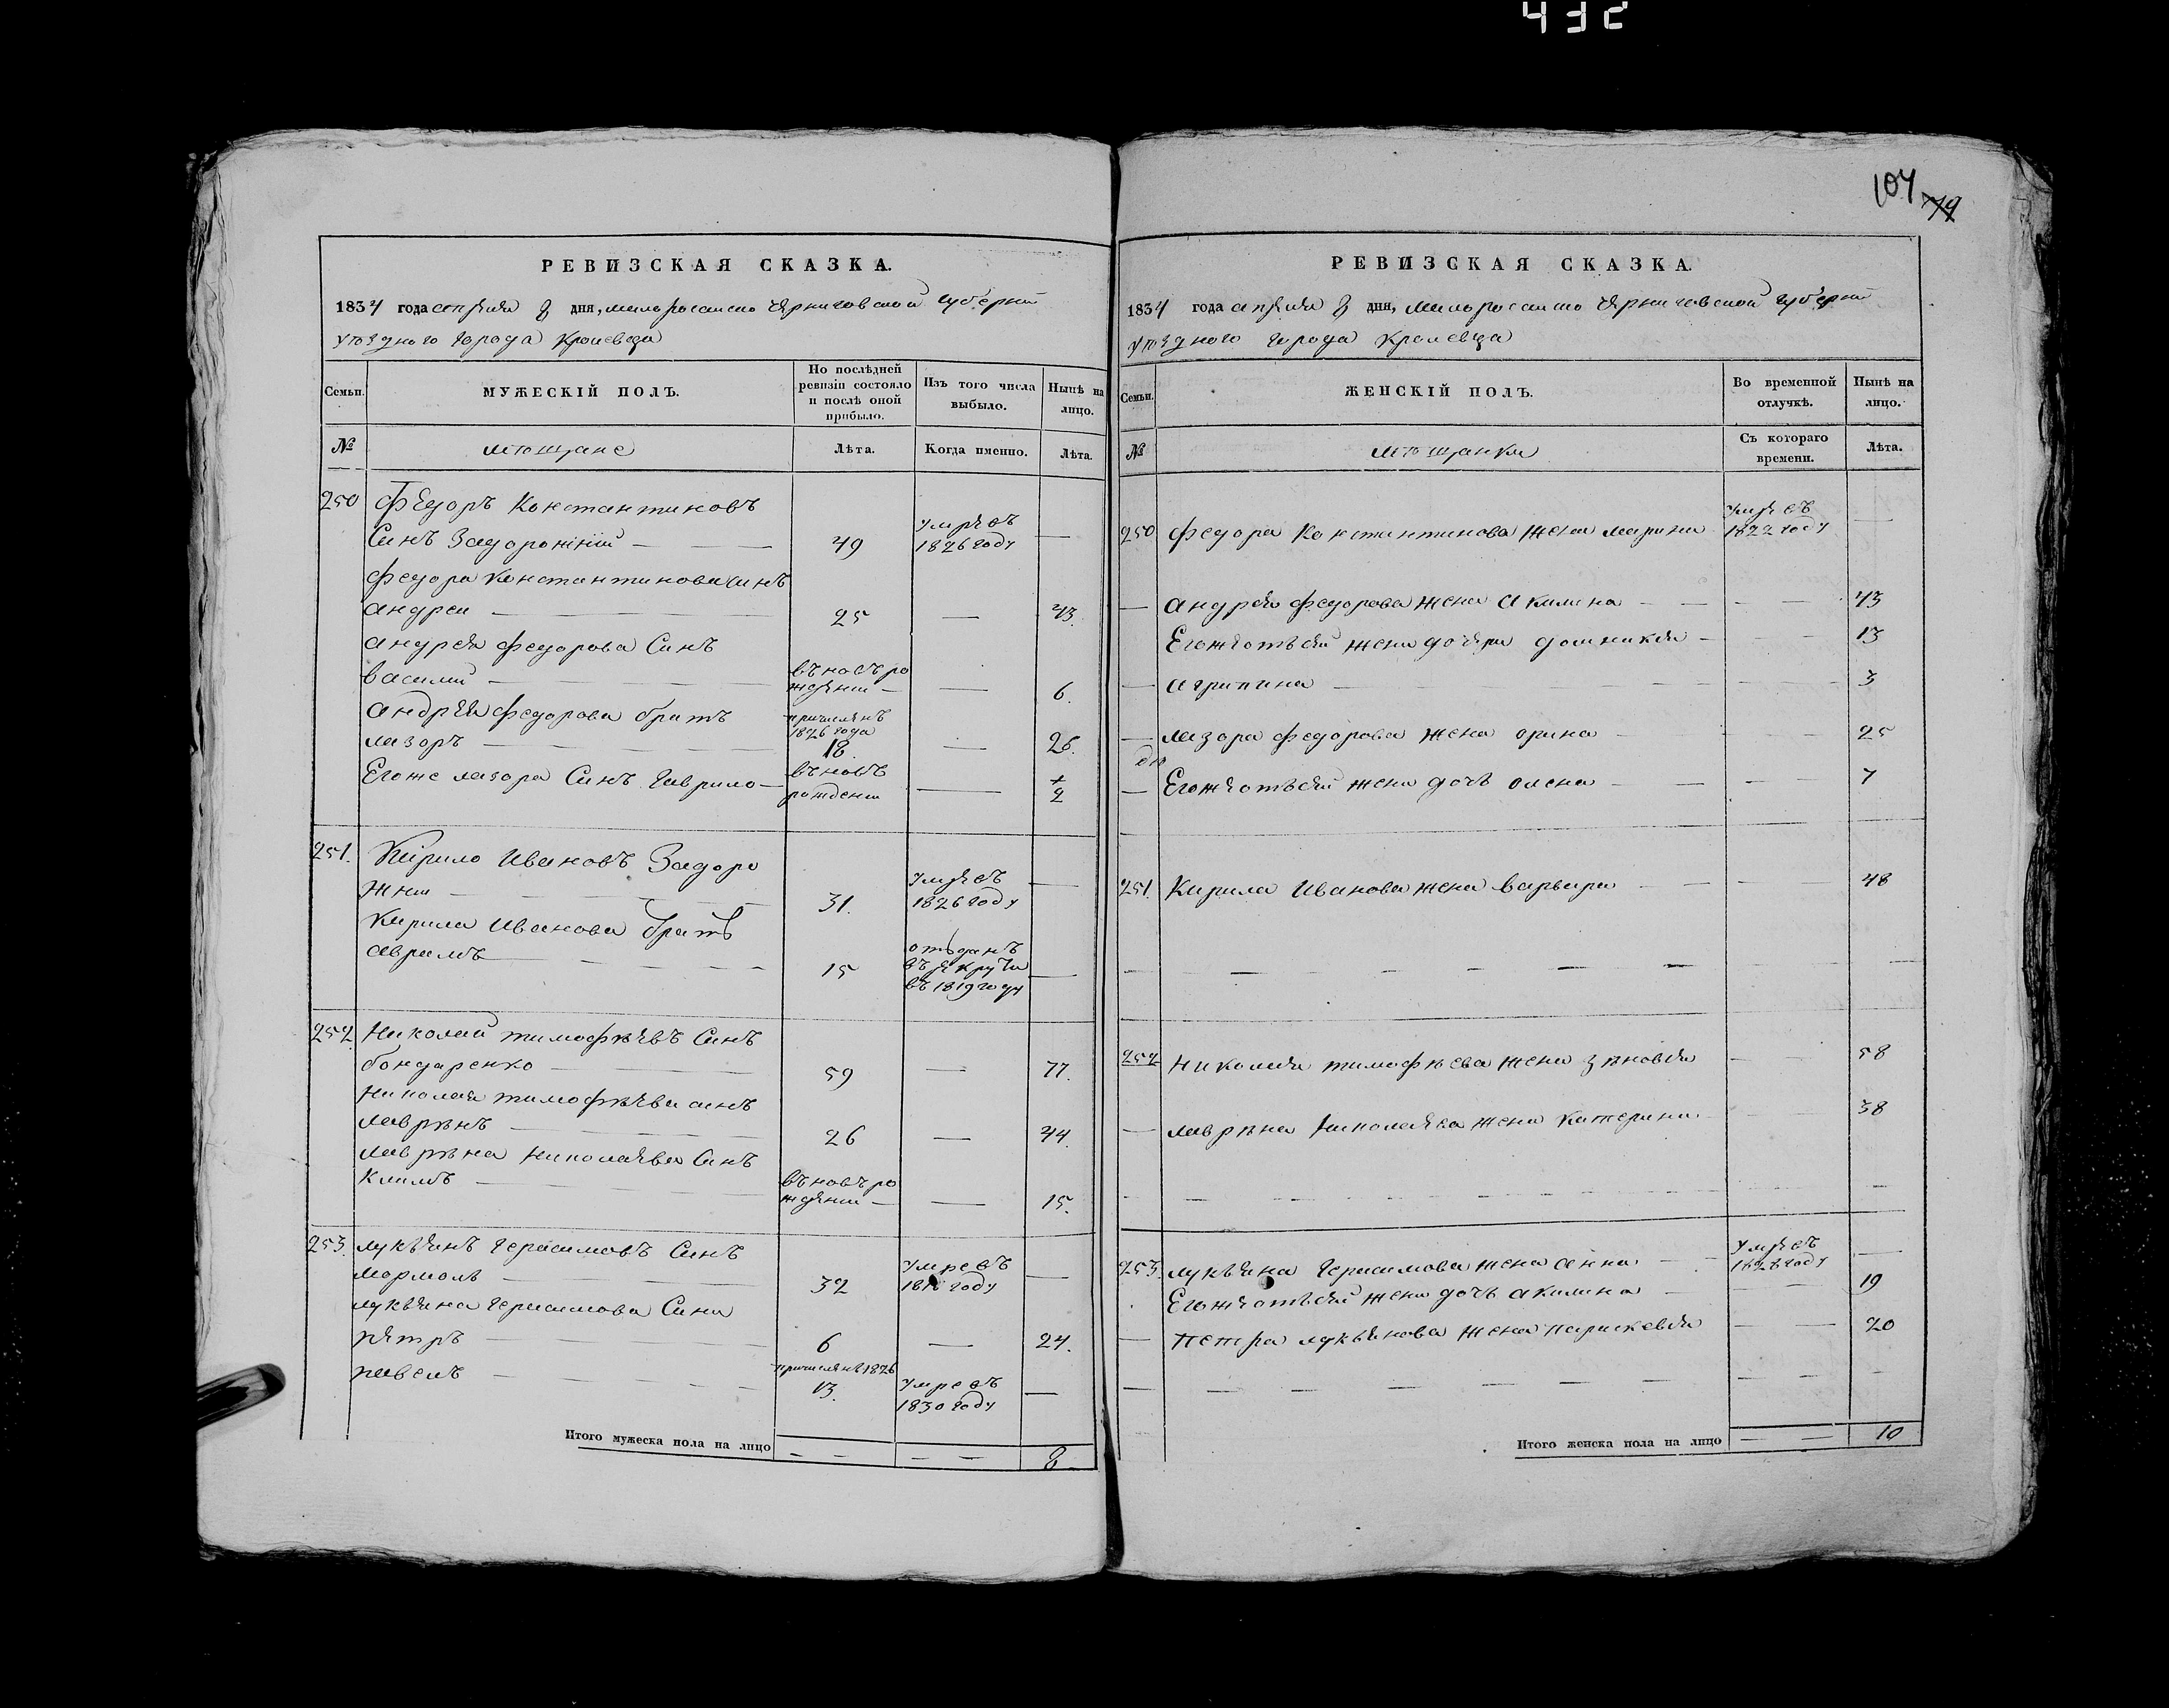 432
104 79
РЕВИЗСКАЯ СКАЗКА.
1834 года апреля 8 дня, малоросийско черниговской губерни
уездного города Кролевца
Семьи.
МУЖЕСКІЙ ПОЛЪ.
По послѣдней ревизіи состояло и послѣ оной прибыло.
Изъ того числа выбыло.
Нынѣ на лицо.
№
мещане
Лѣта.
Когда именно.
Лѣта.
250
Федоръ Константиновъ
Синъ Задорожній — 49 умревъ 1826 году —
Федора Константинова синъ
андреи — 25 — 43.
андрея федорова Синъ
василий — въновъ рождении — — 6.
андрея федорова братъ
лазоръ — причисленъ 1826 года 18 — 26.
Егоже лазора Синъ гаврило — въновъ рождении — 2
251.
Кирило Ивановъ Задоро
жни — 31. умревъ 1826 году —
Кирила Иванова братъ
аврамъ — 15 отъданъ въ рекруты въ 1819 году —
252
Николай тимофеевъ Синъ
бондаренко — 59 — 77.
Николая тимофеева синъ
лавренъ — 26 — 44.
лаврена Николаева Синъ
Климъ — въновъ рождении — — 15.
253.
лукъянъ герасимовъ Синъ
мормоль — 32 умревъ 18 году —
лукъяна герасимова Сини
петръ — 6 — 24.
павелъ — причисленъ 1826 13. умревъ 1830 году —
Итого мужеска пола на лицо — — — — 8
РЕВИЗСКАЯ СКАЗКА.
1834 года апреля 8 дня, малоросийско черниговской губерни
уездного города Кролевца
Семьи.
ЖЕНСКІЙ ПОЛЪ.
Во временной отлучкѣ.
Нынѣ на лицо.
№
мещанки
Съ котораго времени.
Лѣта.
250 федора Константинова жена марина умревъ 1822 году —
— андрея федорова жена Акилина — 43
Егожеотъсей жени дочери домникия — 13
— агрипина — 3
— лазора федорова жена орина — 25
— Егожеотъсей жени дочъ олена — 7
251. Кирила Иванова жена варвара — 48
252 Николая тимофеева жена зеновия — 58
— лаврена Николаева жена катерина — 38
253. лукъяна герасимова жена анна — умревъ 1828 году —
Егожеотъсей жени дочъ акилина — 19
— петра лукъянова жена парискевия — 20
Итого женска пола на лицо — — 10